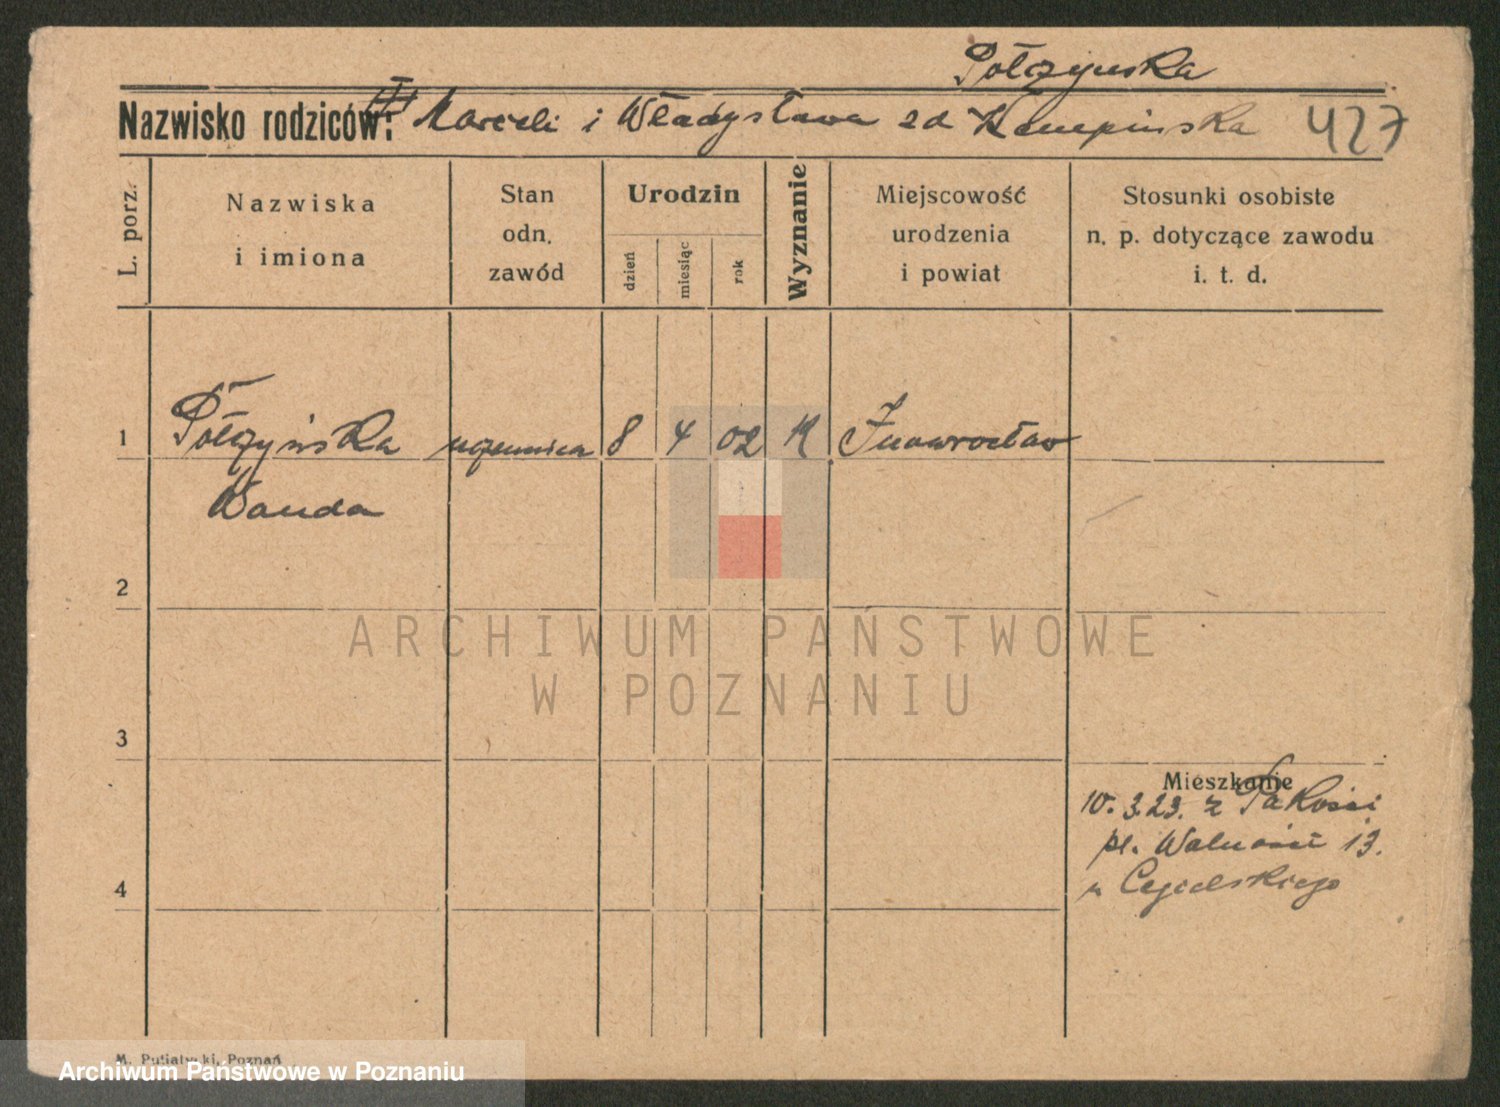 Połczyńska
Nazwisko rodziców: Marceli i Władysława zd Kempińska 427
L. porz.
Nazwiska
i imiona
Stan
odn.
zawód
Urodzin
dzień
miesiąc
rok
Wyznanie
Miejscowość
urodzenia
i powiat
Stosunki osobiste
n. p. dotyczące zawodu
i. t. d.
1 Połczyńska uczennica 8 4 02 K Inowrocław
Wanda
2
ARCHIWUM PAŃSTWOWE
W POZNANIU
3
Mieszkanie
10.3.23. z Pakości
pl. Wolności 13.
4 u Cegielskiego
M. Putiatycki, Poznań
Archiwum Państwowe w Poznaniu